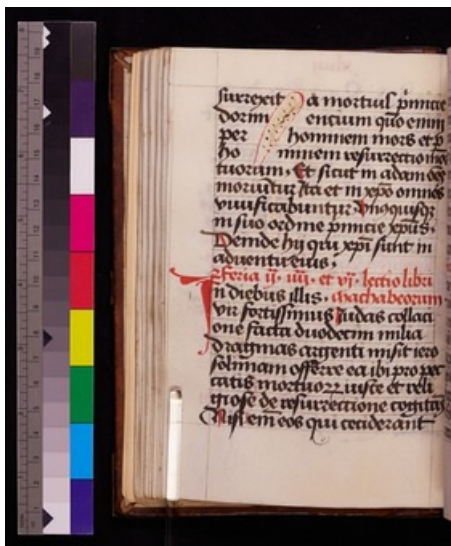 surrexit a mortuis pīmicie
dorm encium quo enim
per hominem mors et p
ho minem resurrectio mor
tuorum. Et sicut in adam oēs
moriūtur Ita et in xpō omnes
viuificabuntur. Vnꝰquisqꝫ
in suo ordine pimicie xpūs.
Deinde hij qui xpī sunt in
aduentu eius.
Feria ij. iiij. et vj. lectio libri
In diebus illis. Machabeorum
Vir fortissimus Iudas collaci
one facta duodecim milia
dragmas argenti misit iero
solimam offerre ea ibi pro pec
catis mortuoꝝ iuste et reli
giose de resurrectione cogitās
Nisi em̄ eos qui ceciderant